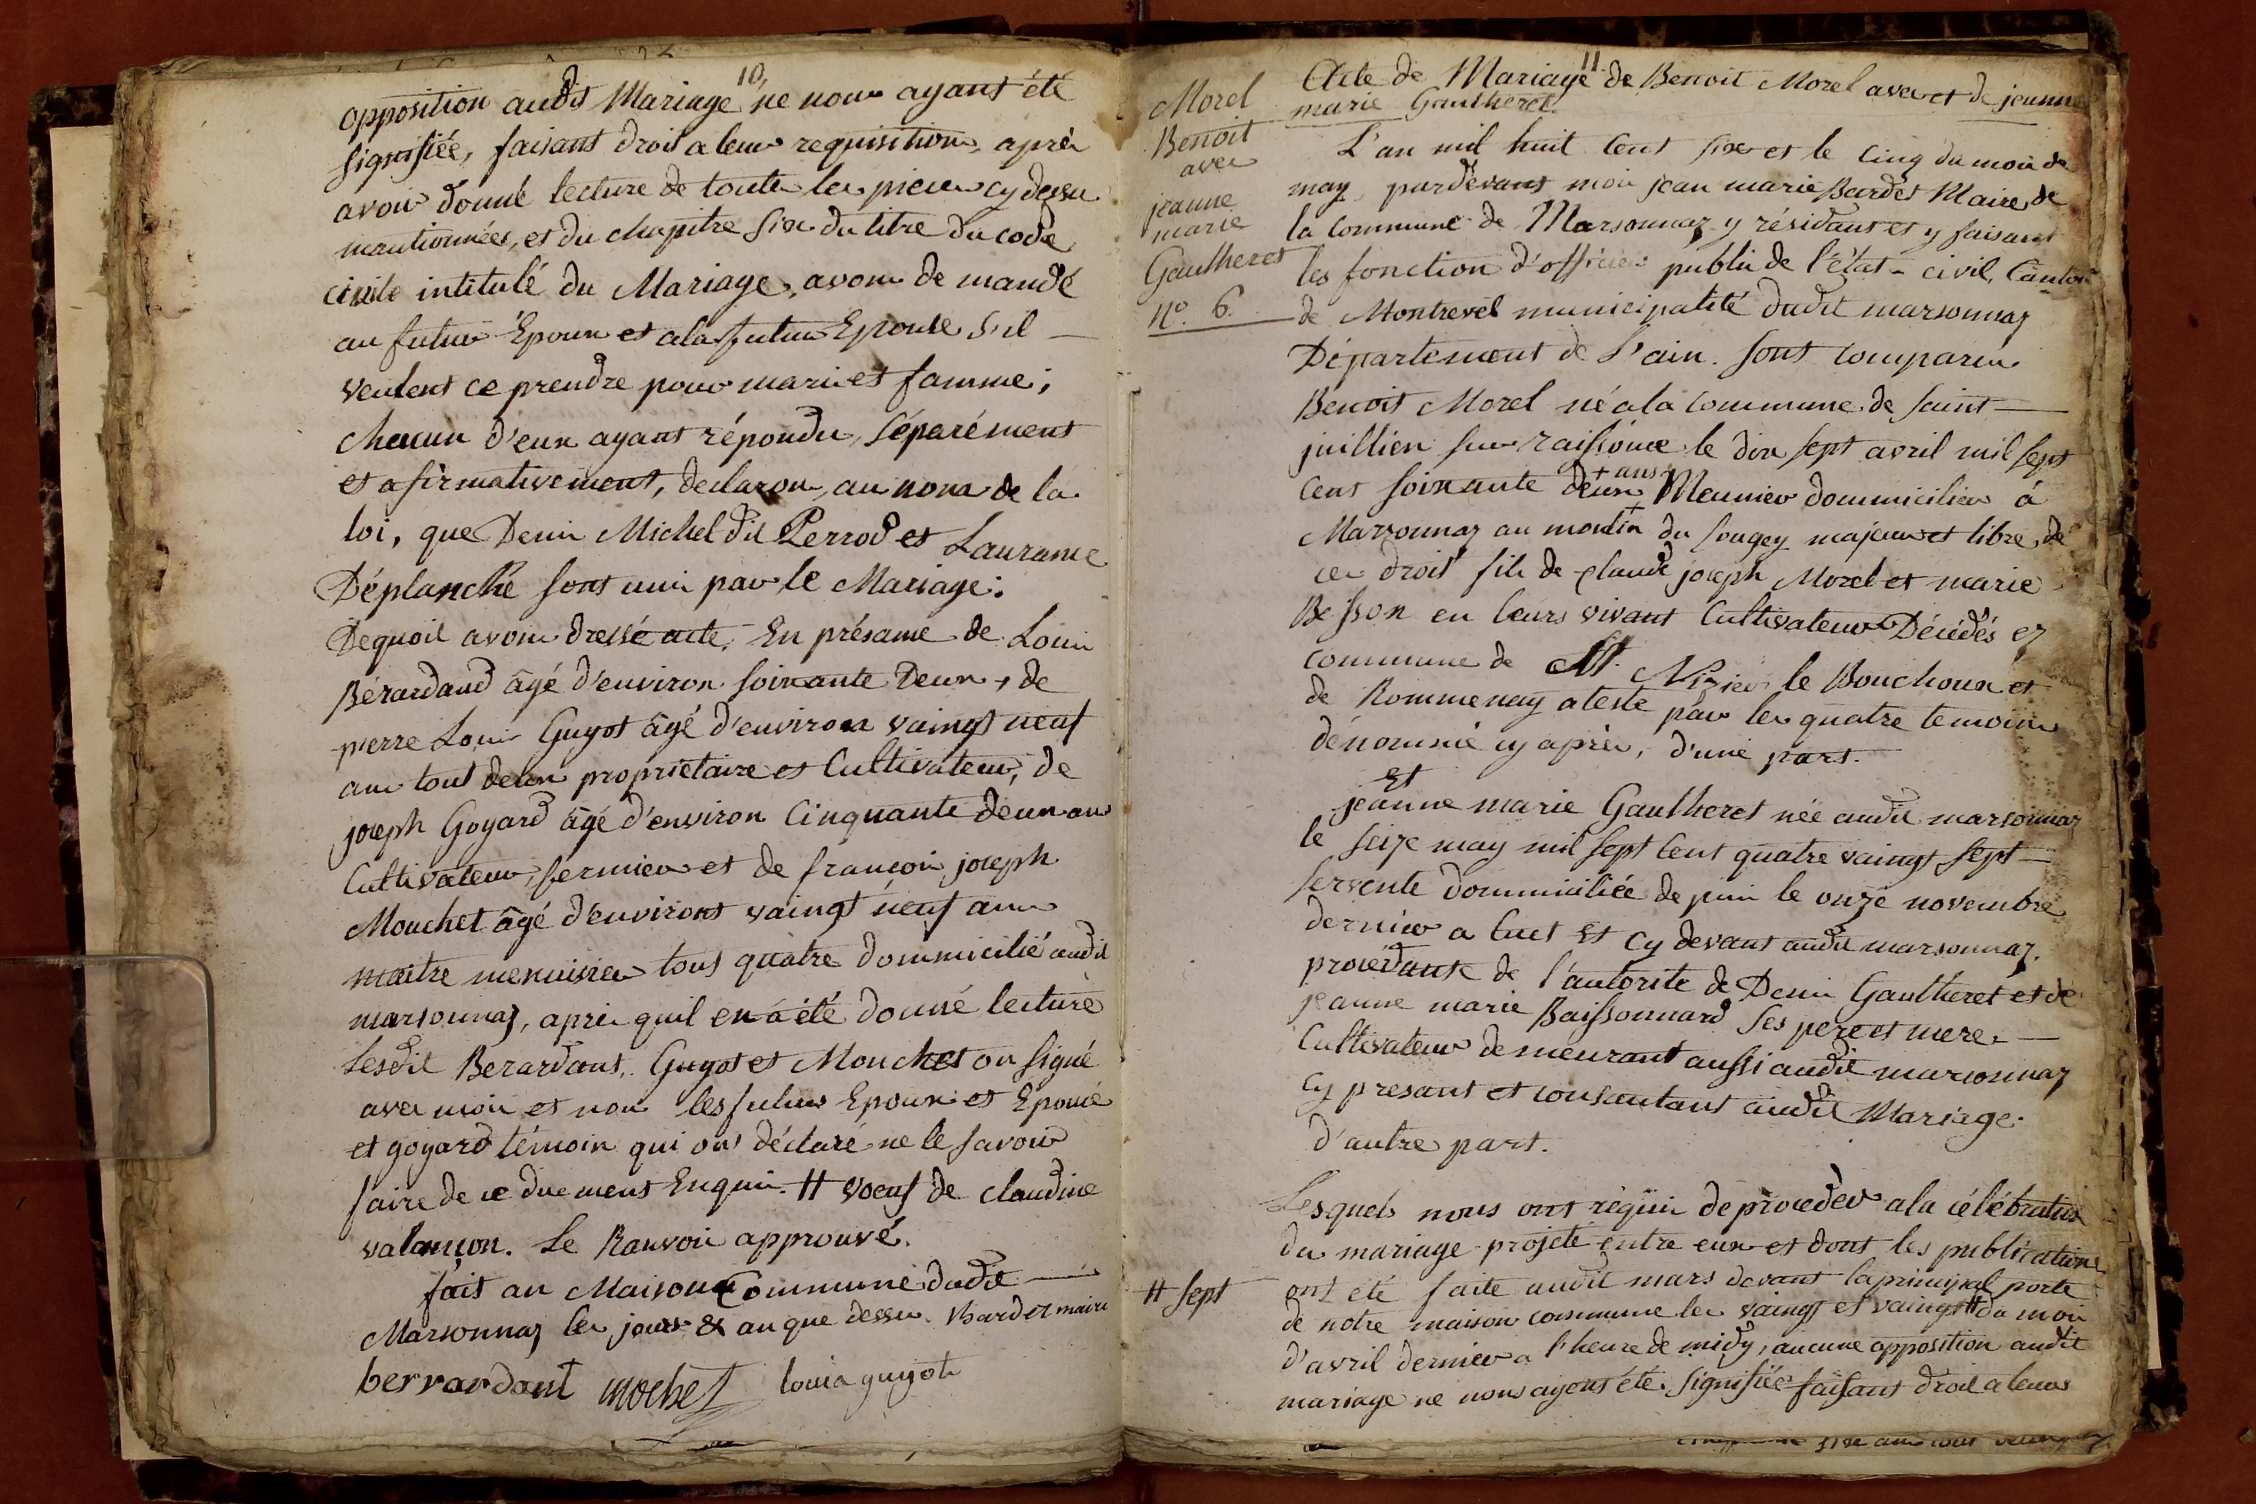 10,
opposition audit Mariage ne nous ayant été
signifiée, faisant droit a leur requisition, après
avoir donné lecture de toute les pieces cy dessu
mentionnées, et du chapitre six du titre du code
civile intitulé du Mariage, avons de mandé
au futur Epoux et a la futur Epouse s'il
veulent ce prendre pour mari et famme;
chacun d'eux ayant répondu, séparément
et afirmativement, declarons, au nom de la
loi, que Denis Michel dit Perrod et Laurance
Déplanche sont unis par le Mariage:
Dequoit avons dressé acte, En présance de Louis
Bérardand âgé d'environ soixante Deux, de
pierre Louis Guyot âgé d'environ vaingt neuf
ans tout deux proprietaire et Cultivateur, de
joseph Goyard âgé d'environ Cinquante deux ans
Cultivateur, fermier et de françois joseph
Mouchet âgé d'environt vaingt neuf ans
maitre menuisier tous quatre dommicilié audit
marsonnaz, après quil en a été donné lecture
lesdit Berardant, Guyot et Mouchet on signé
avec moi et non les futurs Epoux et Epouse
et goyard témoin qui ont déclaré ne le savoir
faire de ce duement Enquis. # voeuf de claudine
valançon. Le Ranvoir approuvé.
fait au Maison Commune dudit
Marsonnaz les jours & an que dessu. Bardet maire
berrardant mochet louis guyot
11
Acte de Mariage de Benoit Morel avec et de jeanne
marie Gautheret
Morel
Benoit
avec
jeanne
marie
Gautheret
n°. 6.
L'an mil huit cent six et le cinq du mois de
may, pardevant moi jean marie Bardet Maire de
la Commune de Marsonnaz y résidant et y faisant
les fonction d'officier public de l'état civil, Canton
de Montrevel municipalité dudit marsonnaz
Département de l'ain. sont comparus
Benoit Morel né a la commune de saint
juillien sur raissouce le dix sept avril mil sept
+ ans
cent soixante deux, Meunier dommicilier à
Marsonnaz au moulin du sougey majeur et libre de
ces droit fils de claude joseph Morel et marie
Besson en leurs vivant Cultivateur Décédés ez
commune de St. Nizier le Bouchoux et
de Rommenay ateste par les quatre temoins
dénommé cy après, d'une part.
Et
jeanne marie Gautheret née audit marsonnaz
le seize may mil sept cent quatre vaingt sept
servente dommiciliée depuis le onze novembre
dernier a Cuet et cy devant audit marsonnaz.
procédante de l'autorite de Denis Gautheret et de
jeanne marie Baissonnard ses pere et mere
Cultivateur demeurant aussi audit marsonnaz
cy presant et consantant audit Mariage.
d'autre part.
Lesquels nous ont réquis de proceder a la célébration
du mariage projeté entre eux et dont les publications
ont été faite audit mars devant la principal porte
# sept
de notre maison commune les vaingt et vaingt # du mois
d'avril dernier a l'heure de midy, aucune opposition audit
mariage ne nous ayent été signifiée faisant droit a leurs